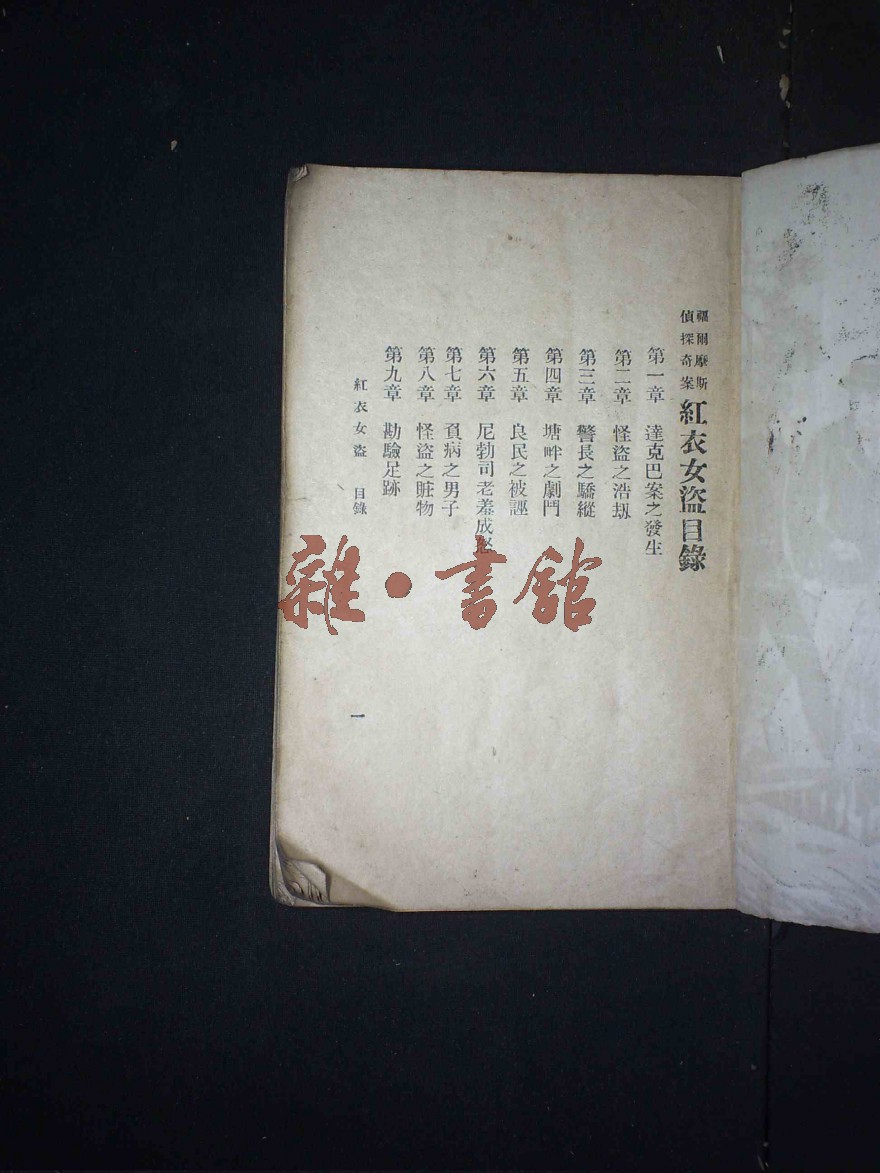 福爾摩斯
偵探奇案
紅衣女盜目錄
第一章　達克巴案之發生
第二章　怪盜之浩刼
第三章　警長之驕縱
第四章　塘畔之劇鬥
第五章　良民之被誣
第六章　尼勃司老羞成怒
第七章　負病之男子
第八章　怪盜之贓物
第九章　勘驗足跡
紅衣女盜　目錄
一
雜·書館